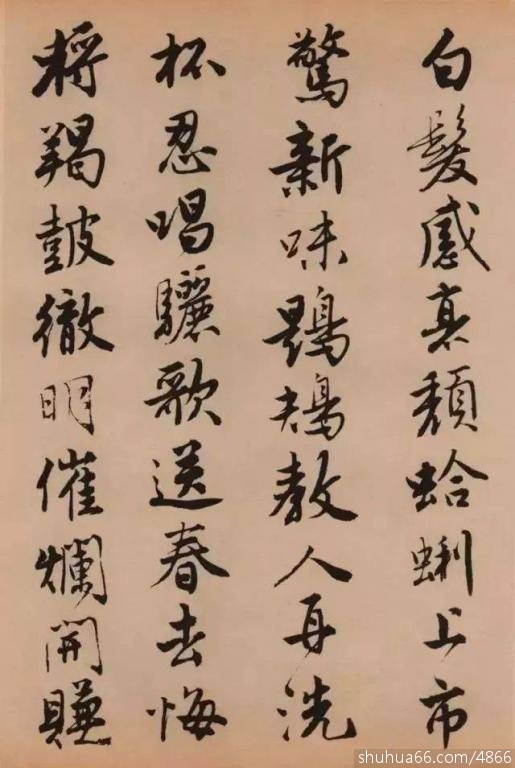 白髮感衰頹蛤蜊上市
驚新味鶗鴂教人再洗
杯忍唱驪歌送春去悔
將羯皷徹明催爛開賺
shuhua66.com/4866